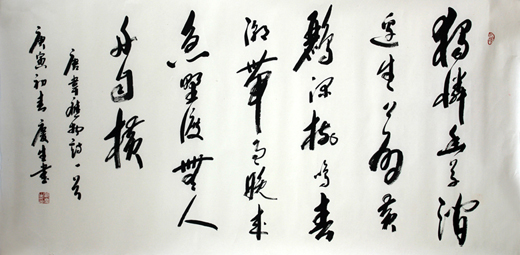 獨憐幽草澗
邊生上有黃
鸝深樹鳴春
潮帶雨晚來
急野渡無人
舟自橫
唐韋應物詩一首
庚寅初春慶生書